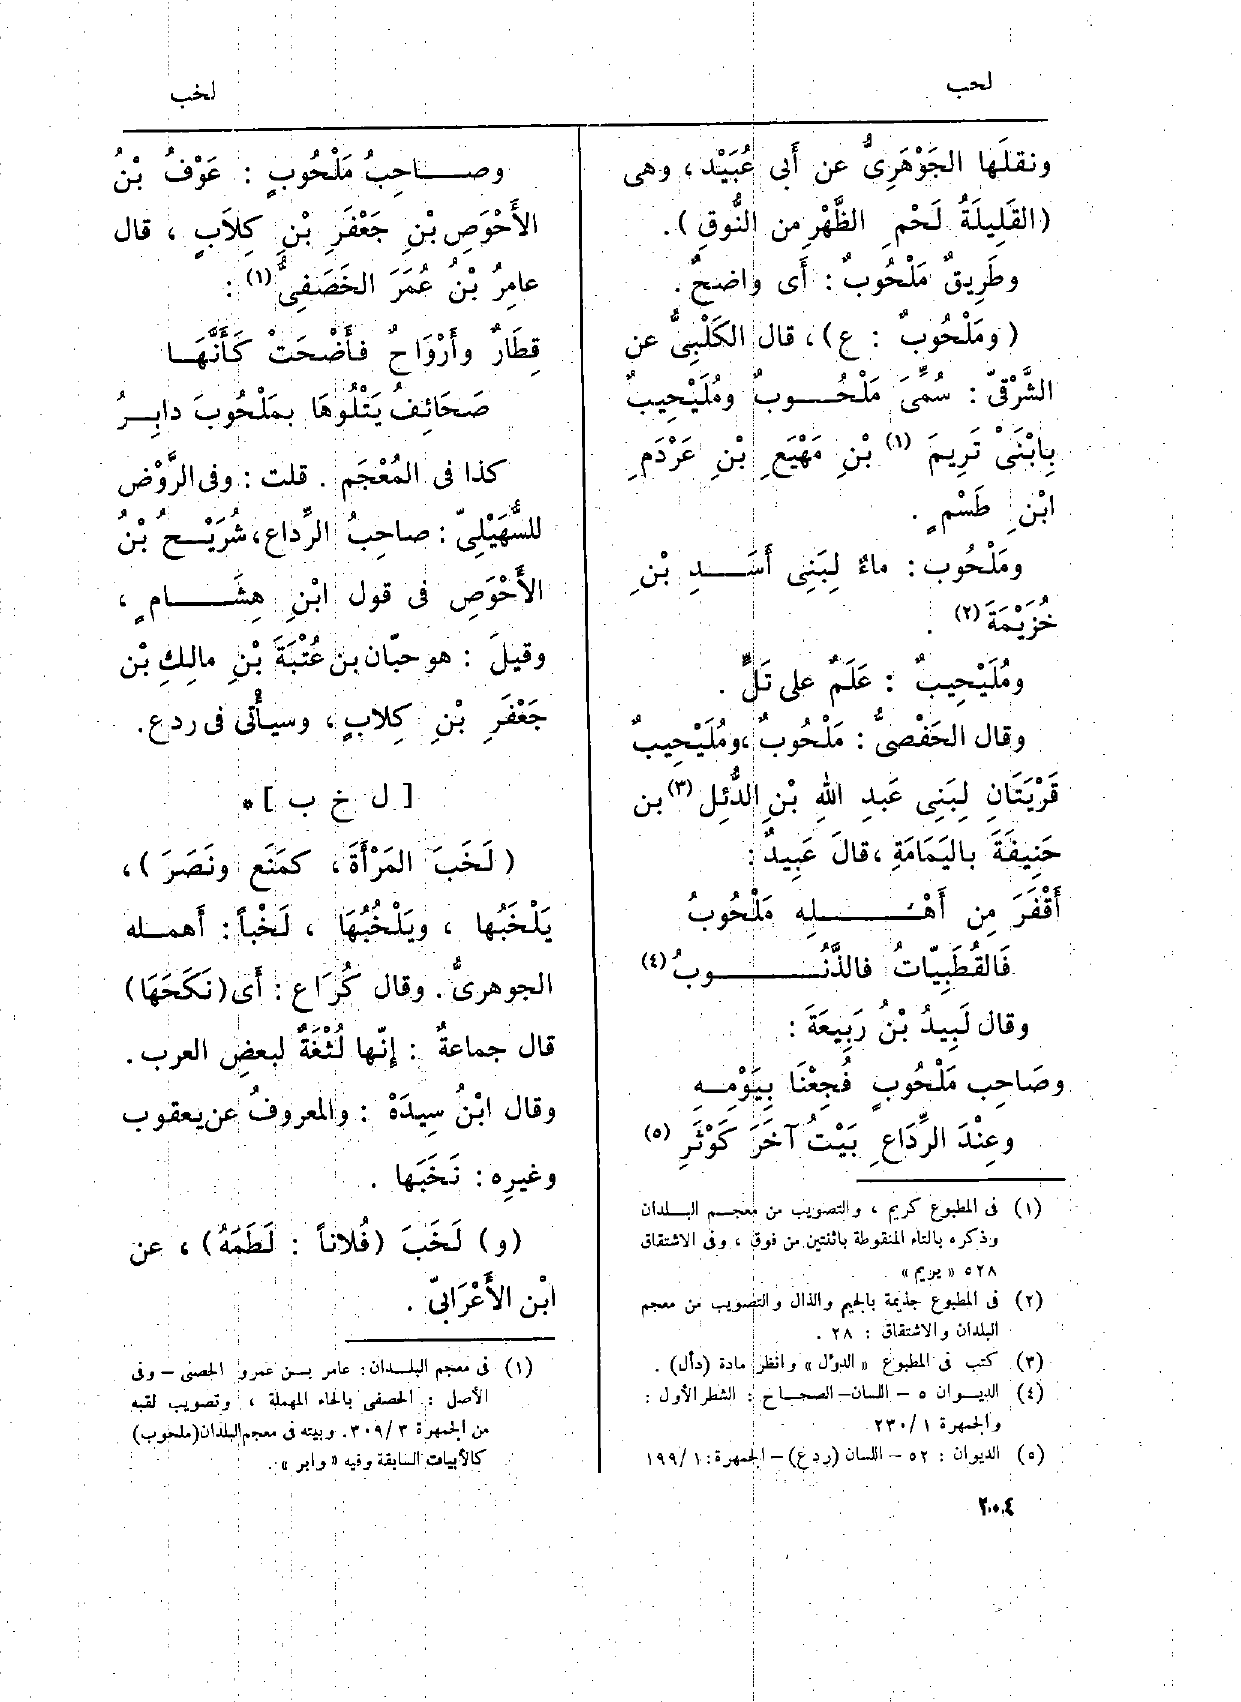 لحب
لخب
ونقلَها الجَوْهَرِىُّ عن أَبى عُبَيْد، وهى
(القَلِيلَةُ لَحْمِ الظَّهْرِ من النُّوقِ).
وطَرِيقٌ مَلْحُوبٌ: أَى واضحٌ.
(ومَلْحُوبٌ : ع)، قال الكَلْبِىُّ عن
الشَّرْقِىّ: سُمِّىَ مَلْحُوبٌ ومُلَيْحِيبٌ
بِابْنَىْ تَرِيمَ (١) بْنِ مَهْيَعِ بْنِ عَرْدَمِ
ابْنِ طَسْمٍ .
ومَلْحُوب: ماءٌ لِبَنِى أَسَدِ بْنِ
خُزَيْمَةَ (٢) .
ومُلَيْحِيبٌ : عَلَمٌ على تَلٍّ .
وقال الحَفْصىُّ: مَلْحُوبٌ، ومُلَيْحِيبٌ
قَرْيَتَانِ لِبَنِى عَبدِ اللهِ بْنِ الدُّئِل (٣) بن
حَنِيفَةَ باليَمَامَةِ، قالَ عَبِيدٌ:
أَقْفَرَ مِن أَهْلِهِ مَلْحُوبُ
فَالقُطَبِيَّاتُ فالذَّنُوبُ (٤)
وقال لَبِيدُ بْنُ رَبِيعَةَ :
وصَاحِب مَلْحُوبٍ فُجِعْنَا بِيَوْمِهِ
وعِنْدَ الرِّدَاعِ بَيْتُ آخَرَ كَوْثَرِ (٥)
(١) فى المطبوع كريم ، والتصويب من معجم البلدان
وذكره بالتاء المنقوطة باثنتين من فوق ، وفى الاشتقاق
٥٢٨ « يريم »
(٢) فى المطبوع جذيمة بالجيم والذال والتصويب من معجم
البلدان والاشتقاق : ٢٨ .
(٣) كتب فى المطبوع « الدؤل » وانظر مادة (دأل) .
(٤) الديوان ٥ – اللسان – الصحاح : الشطر الأول :
والجمهرة ١ /٢٣٠
(٥) الديوان : ٥٢ – اللسان (ردع) – الجمهرة: ١ /١٩٩
وصاحِبُ مَلْحُوبٍ : عَوْفُ بْنُ
الأَحْوَصِ بْنِ جَعْفَرِ بْنِ كِلاَبٍ ، قال
عامِرُ بْنُ عُمَرَ الخَصَفِىُّ (١) :
قِطَارٌ وأَرْوَاحٌ فأَضْحَتْ كَأَنَّهَا
صَحَائِفُ يَتْلُوهَا بمَلْحُوبَ دابِرُ
كذا فى المُعْجَم . قلت : وفى الرَّوْض
للسُّهَيْلِىّ : صاحِبُ الرِّداع، شُرَيْحُ بْنُ
الأَحْوَصِ فى قول ابْنِ هِشَامٍ ،
وقيلَ : هو حبّان بن عُتْبَةَ بْنِ مالِكِ بْن
جَعْفَرِ بْنِ كِلابٍ، وسيأْتى فى ردع.
[ ل خ ب ] *
(لَخَبَ المَرْأَةَ، كمَنَع ونَصَرَ)،
يَلْخَبُها ، ويَلْخُبُهَا ، لَخْباً : أَهمله
الجوهرىُّ. وقال كُرَاع : أَى (نَكَحَهَا)
قال جماعةٌ : إِنّها لُثْغَةٌ لبعضِ العرب .
وقال ابْنُ سِيدَهْ : والمعروفُ عن يعقوب
وغيرِه : نَخَبَها .
(و) لَخَبَ (فُلاناً : لَطَمَهُ)، عن
ابْن الأَعْرَابىّ .
(١) فى معجم البلدان: عامر بن عمرو الحصنى – وفى
الأصل : الحصفى بالحاء المهملة ، وتصويب لقبه
من الجمهرة ٣ /٣٠٩. وبيته فى معجم البلدان (ملحوب)
كالأبيات السابقة وفيه « وابر » .
٢٠٤